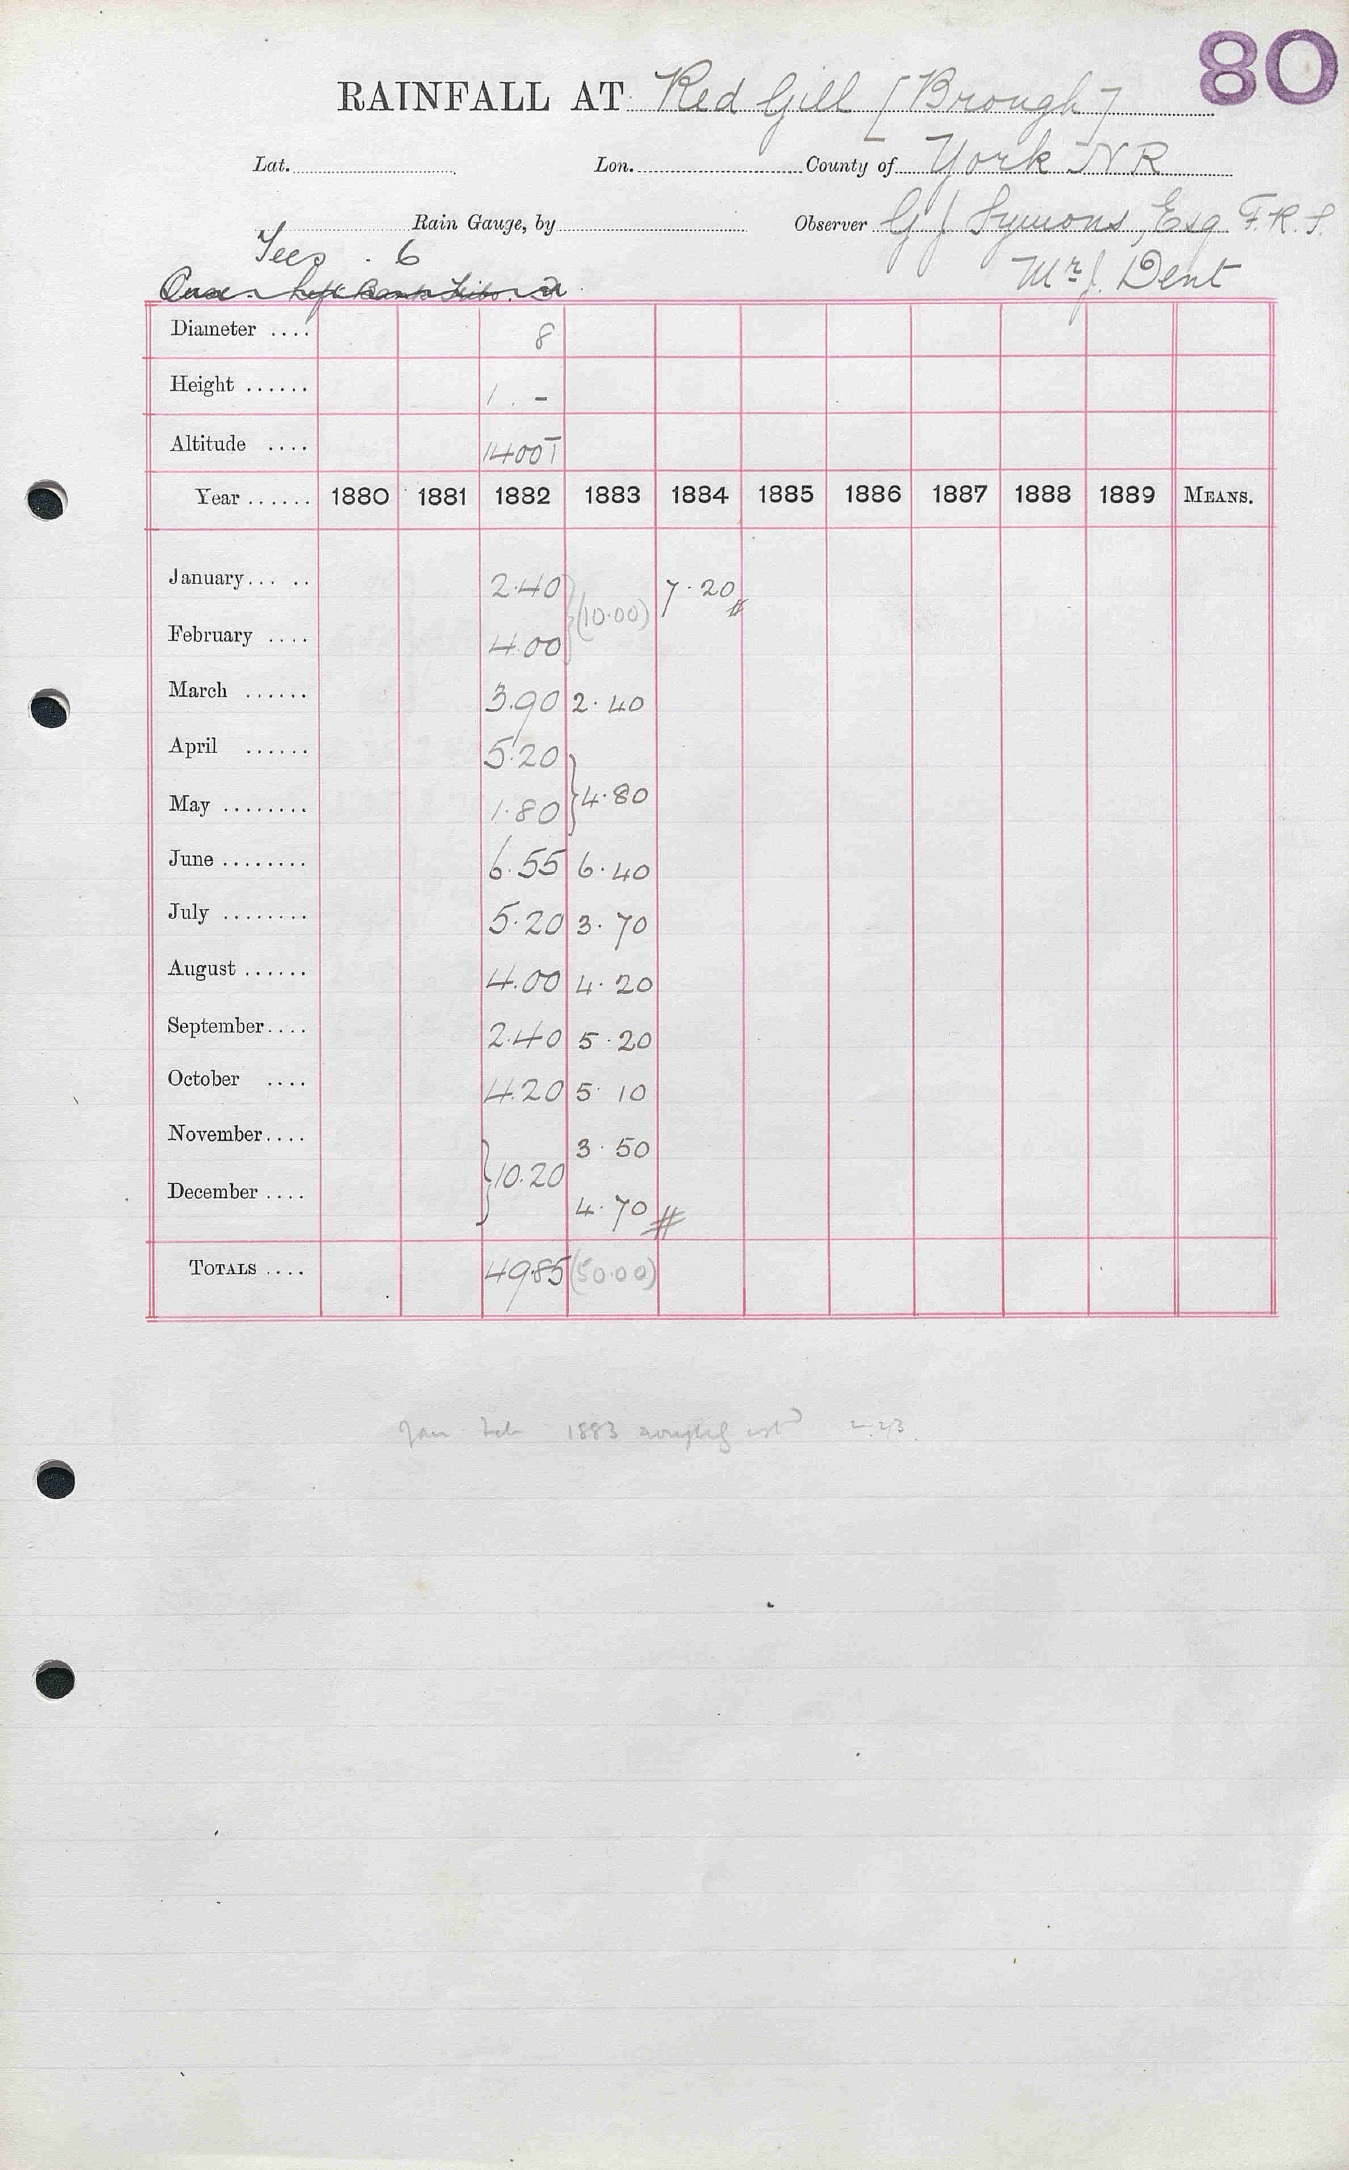 80
RAINFALL AT Red Gill [Brough]
Lat. Lon. County of York N R
Rain Gauge, by Observer G J Symons, Esq F.R.S.
Tees . 6 Mr J. Dent
Ouse Left Bank Tribs.
Diameter .... 8
Height ...... 1 . -
Altitude .... 1400T
Year ...... 1880 1881 1882 1883 1884 1885 1886 1887 1888 1889 MEANS.
January... .. 2.40 } (10.00) 7.20 //
February .... 4.00
March ...... 3.90 2.40
April ...... 5.20
May ........ 1.80 } 4.80
June ........ 6.55 6.40
July ........ 5.20 3.70
August ...... 4.00 4.20
September.... 2.40 5.20
October .... 4.20 5 10
November.... 3.50
December .... } 10.20 4.70 #
TOTALS .... 49.85 (50.00)
Jan Feb 1883 roughly estd